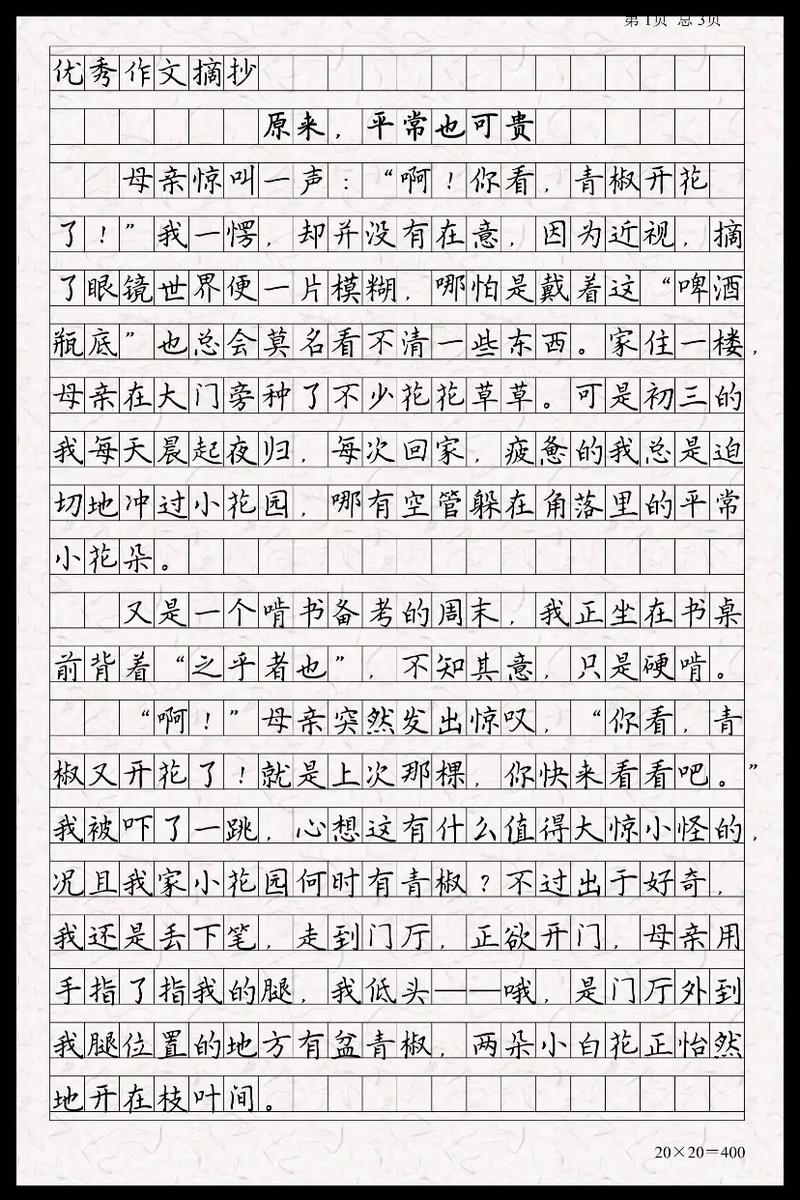 第1页 总3页
优秀作文摘抄
原来，平常也可贵
母亲惊叫一声：“啊！你看，青椒开花
了！”我一愣，却并没有在意，因为近视，摘
了眼镜世界便一片模糊，哪怕是戴着这“啤酒
瓶底”也总会莫名看不清一些东西。家住一楼，
母亲在大门旁种了不少花花草草。可是初三的
我每天晨起夜归，每次回家，疲惫的我总是迫
切地冲过小花园，哪有空管躲在角落里的平常
小花朵。
又是一个啃书备考的周末，我正坐在书桌
前背着“之乎者也”，不知其意，只是硬啃。
“啊！”母亲突然发出惊叹，“你看，青
椒又开花了！就是上次那棵，你快来看看吧。”
我被吓了一跳，心想这有什么值得大惊小怪的，
况且我家小花园何时有青椒？不过出于好奇，
我还是丢下笔，走到门厅，正欲开门，母亲用
手指了指我的腿，我低头——哦，是门厅外到
我腿位置的地方有盆青椒，两朵小白花正怡然
地开在枝叶间。
20×20=400